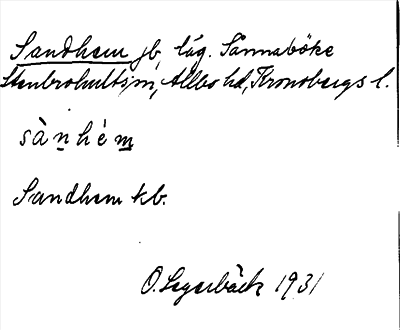 Sandhem jb, låg. Sånnaböke
Stenbrohults sn, Allbo hd, Kronobergs l.
sànhém
Sandhem kb.
O. Segerbäck 1931